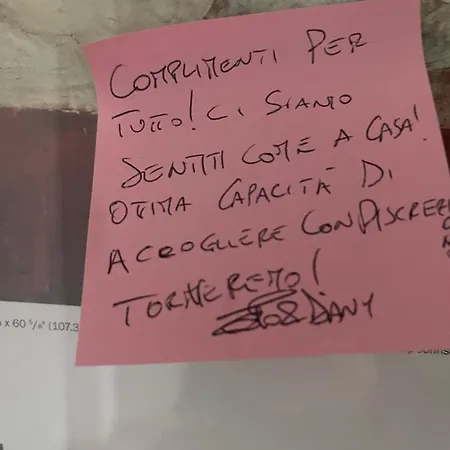 COMPLIMENTI PER
TUTTO! CI SIAMO
SENTITI COME A CASA!
OTTIMA CAPACITÀ DI
ACCOGLIERE CON DISCREZI
TORNEREMO!
& DANY
x 60 5/8" (107.3